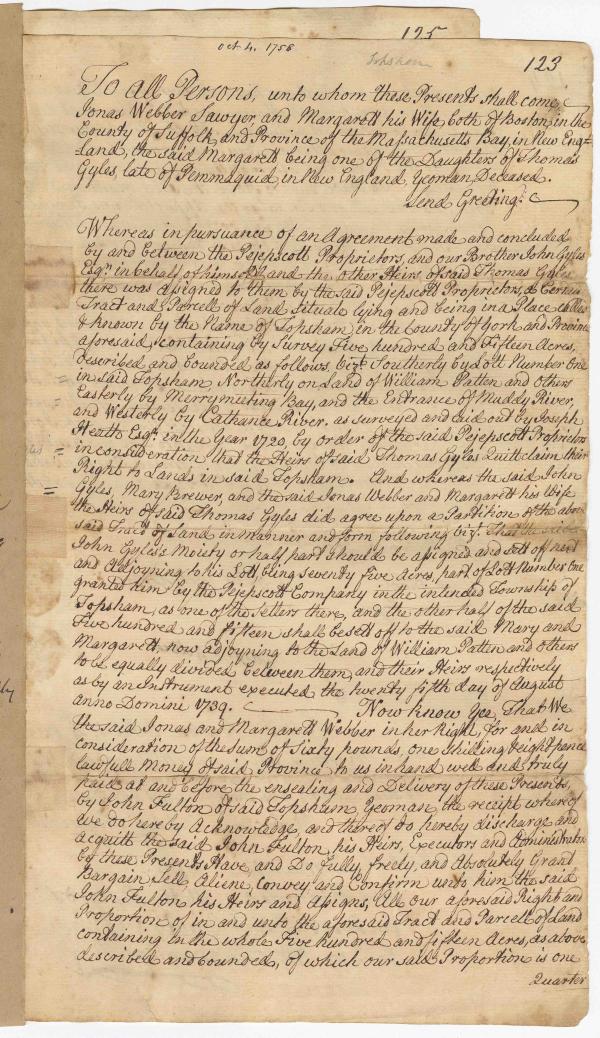 125
Oct 4. 1756
Topsham
123
To all Persons, unto whom these Presents shall come,
Jonas Webber Sawyer and Margarett his Wife both of Boston, in the
County of Suffolk, and Province of the Massachusetts Bay, in New Eng=
=land, the said Margarett being one of the Daughters of Thomas
Gyles, late of Pemmaquid, in New England, Yeoman, Deceased.
Send Greeting:
Whereas in pursuance of an Agreement made and concluded
by and between the Pejepscott Proprietors, and our Brother John Gyles
Esqr. in behalf of himself and the other Heirs of said Thomas Gyles
there was assigned to them by the said Pejepscott Proprietors, a Certain
Tract and Parcell of Land Situate lying and being in a Place called
& known by the Name of Topsham, in the County of York and Province
aforesaid, containing by Survey Five hundred and Fifteen Acres,
described and bounded as follows, vizt. Southerly by Lott Number One
in said Topsham, Northerly on Land of William Patten and others
Easterly by Merrymeeting Bay, and the Entrance of Muddy River,
and Westerly by Cathance River, as surveyed and laid out by Joseph
Heath Esqr. in the Year 1720, by order of the said Pejepscott Proprietors
in consideration that the Heirs of said Thomas Gyles Quitt claim their
Right to Lands in said Topsham. And whereas the said John
Gyles, Mary Brewer, and the said Jonas Webber and Margarett his Wife
the Heirs of said Thomas Gyles did agree upon a Partition of the above
said Tract of Land in Manner and form following vizt. That the
John Gyles's Moiety or half part should be assigned and sett off next
and adjoyning to his Lott, being seventy Five Acres, part of Lott Number One
granted him by the Pejepscott Company in the intended Township of
Topsham, as one of the Setlers there, and the other half of the said
Five hundred and fifteen shall be sett off to the said Mary and
Margarett, now adjoyning to the Land of William Patten and others
to be equally divided between them, and their Heirs respectively
as by an Instrument executed the twenty fifth day of August
Anno Domini 1739. Now know Yee, That We
the said Jonas and Margarett Webber in her Right, for and in
consideration of the sum of Sixty pounds, one Shilling & eight pence
lawfull Money of said Province to us in hand well and truly
paid at and before the ensealing and Delivery of these Presents,
by John Fulton of said Topsham, Yeoman, the receipt whereof
we do hereby Acknowledge, and thereof do hereby discharge and
acquitt the said John Fulton, his Heirs, Executors and Administrators
by these Presents Have, and Do fully, freely, and Absolutely Grant
Bargain, Sell, Aliene, Convey and Confirm unto him the said
John Fulton his Heirs and Assigns, All our aforesaid Right and
Proportion of in and unto the aforesaid Tract and Parcell of Land
containing in the whole Five hundred and fifteen Acres, as above
described and bounded, of which our said Proportion is one
Quarter